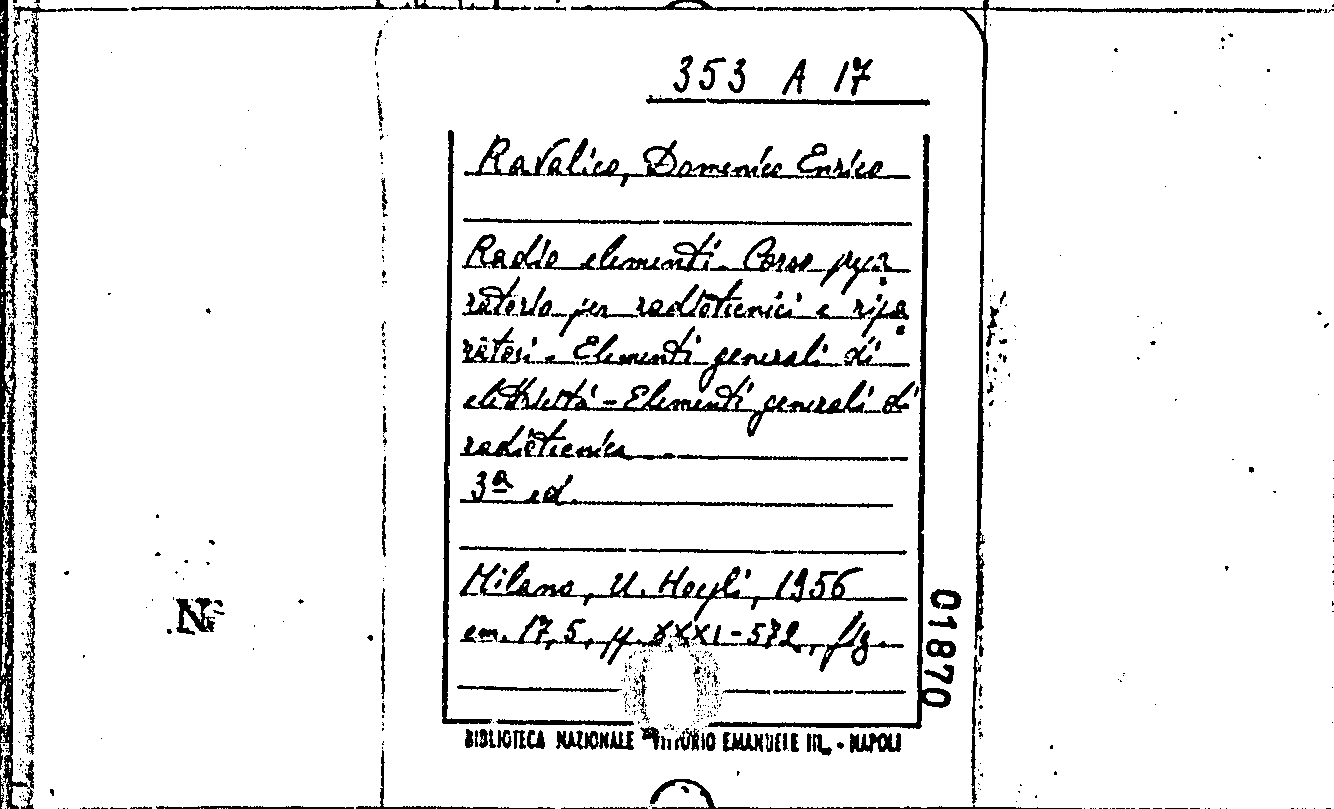 353 A 17
Ravalico, Domenico Enrico
Radio elementi. Corso prepa
ratorio per radiotecnici e ripa
ratori. Elementi generali di
elettricità - Elementi generali di
radiotecnica
3ª ed.
Milano, U. Hoepli, 1956
cm. 17,5, pp. XXXI-572, fig.
BIBLIOTECA NAZIONALE "VITTORIO EMANUELE III„ - NAPOLI
01870
N°